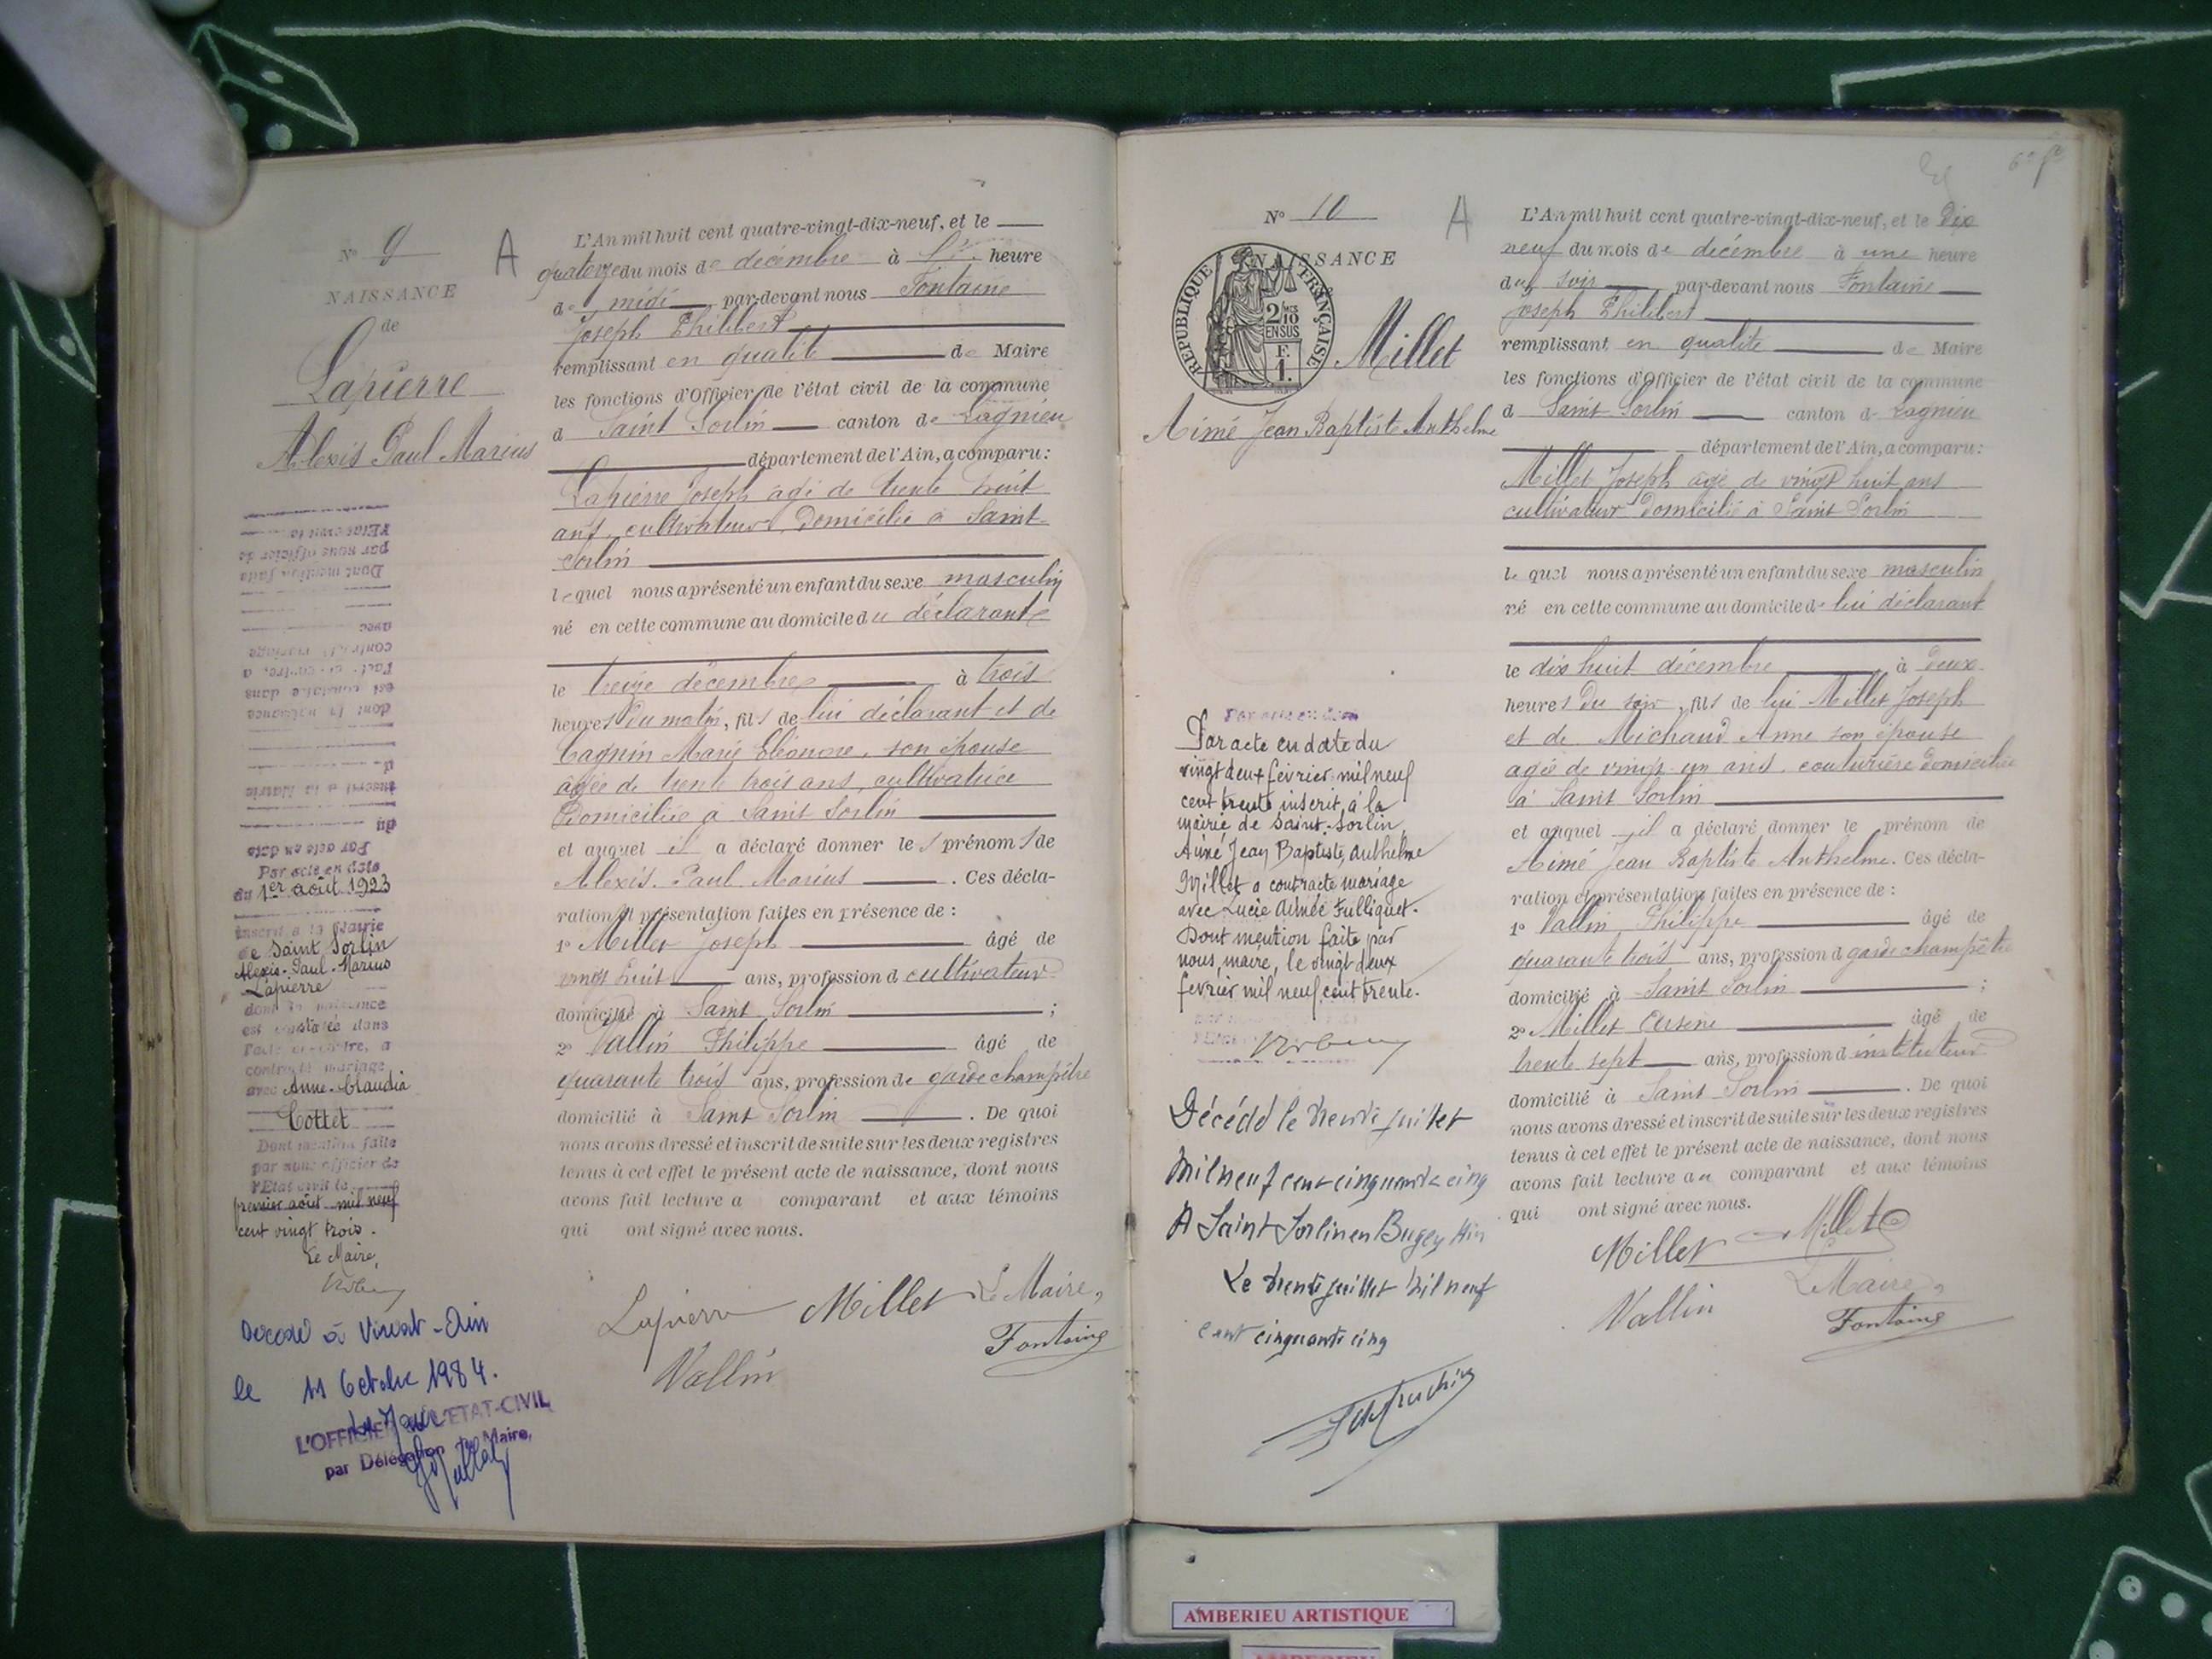 N° 9
NAISSANCE
de
Lapierre
Alexis Paul Marius
Par acte en date
Par acte en date
du 1er août 1923
inscrit à la Mairie
de Saint Sorlin
Alexis-Paul-Marius
Lapierre
dont la naissance
est constatée dans
l'acte ci-contre, a
contracté mariage
avec Anne-Claudia
Cottet
Dont mention faite
par nous officier de
l'Etat civil le
premier août mil neuf
cent vingt trois.
Le Maire,
Décédé à Viriat-Ain
le 11 Octobre 1984.
L'OFFICIER DE L'ETAT-CIVIL
par Délégation du Maire,
A
L'An mil huit cent quatre-vingt-dix-neuf, et le
quatorze du mois de décembre à heure
de midi par-devant nous Fontaine
Joseph Philibert
remplissant en qualité de Maire
les fonctions d'Officier de l'état civil de la commune
d Saint Sorlin canton de Lagnieu
département de l'Ain, a comparu:
Lapierre Joseph âgé de trente huit
ans, cultivateur domicilié à Saint
Sorlin
lequel nous a présenté un enfant du sexe masculin
né en cette commune au domicile du déclarant
le treize décembre à trois
heures du matin, fils de lui déclarant et de
Cagnin Marie Eléonore, son épouse
âgée de trente trois ans, cultivatrice
domiciliée à Saint Sorlin
et auquel il a déclaré donner les prénoms de
Alexis. Paul. Marius. Ces décla-
ration et présentation faites en présence de :
1° Millet Joseph âgé de
vingt huit ans, profession d cultivateur
domicilié à Saint Sorlin ;
2° Vallin Philippe âgé de
quarante trois ans, profession de garde champêtre
domicilié à Saint Sorlin. De quoi
nous avons dressé et inscrit de suite sur les deux registres
tenus à cet effet le présent acte de naissance, dont nous
avons fait lecture a comparant et aux témoins
qui ont signé avec nous.
Lapierre Millet Le Maire,
Vallin Fontaine
N° 10
NAISSANCE
REPUBLIQUE FRANÇAISE
2/10
EN SUS
F.
1.
Millet
Aimé Jean Baptiste Anthelme
Par acte en date
Par acte en date du
vingt deux février mil neuf
cent trente inscrit à la
mairie de Saint-Sorlin
Aimé Jean Baptiste Anthelme
Millet a contracté mariage
avec Lucie Aimée Fulliquet.
Dont mention faite par
nous, maire, le vingt deux
février mil neuf cent trente.
Décédé le trente juillet
mil neuf cent cinquante cinq
A Saint Sorlin en Bugey Ain
Le trente juillet mil neuf
cent cinquante cinq
A
L'An mil huit cent quatre-vingt-dix-neuf, et le dix
neuf du mois de décembre à une heure
du soir par-devant nous Fontaine
Joseph Philibert
remplissant en qualité de Maire
les fonctions d'Officier de l'état civil de la commune
d Saint Sorlin canton d Lagnieu
département de l'Ain, a comparu:
Millet Joseph âgé de vingt huit ans
cultivateur domicilié à Saint Sorlin
lequel nous a présenté un enfant du sexe masculin
né en cette commune au domicile de lui déclarant
le dix huit décembre à deux
heures du soir, fils de lui Millet Joseph
et de Michaud Anne son épouse
agée de vingt un ans, couturière domiciliée
à Saint Sorlin
et auquel il a déclaré donner le prénom de
Aimé Jean Baptiste Anthelme. Ces décla-
ration et présentation faites en présence de :
1° Vallin Philippe âgé de
quarante trois ans, profession d garde champêtre
domicilié à Saint Sorlin ;
2° Millet âgé de
trente sept ans, profession d instituteur
domicilié à Saint Sorlin. De quoi
nous avons dressé et inscrit de suite sur les deux registres
tenus à cet effet le présent acte de naissance, dont nous
avons fait lecture au comparant et aux témoins
qui ont signé avec nous.
Millet Millet
Vallin Le Maire,
Fontaine
AMBERIEU ARTISTIQUE